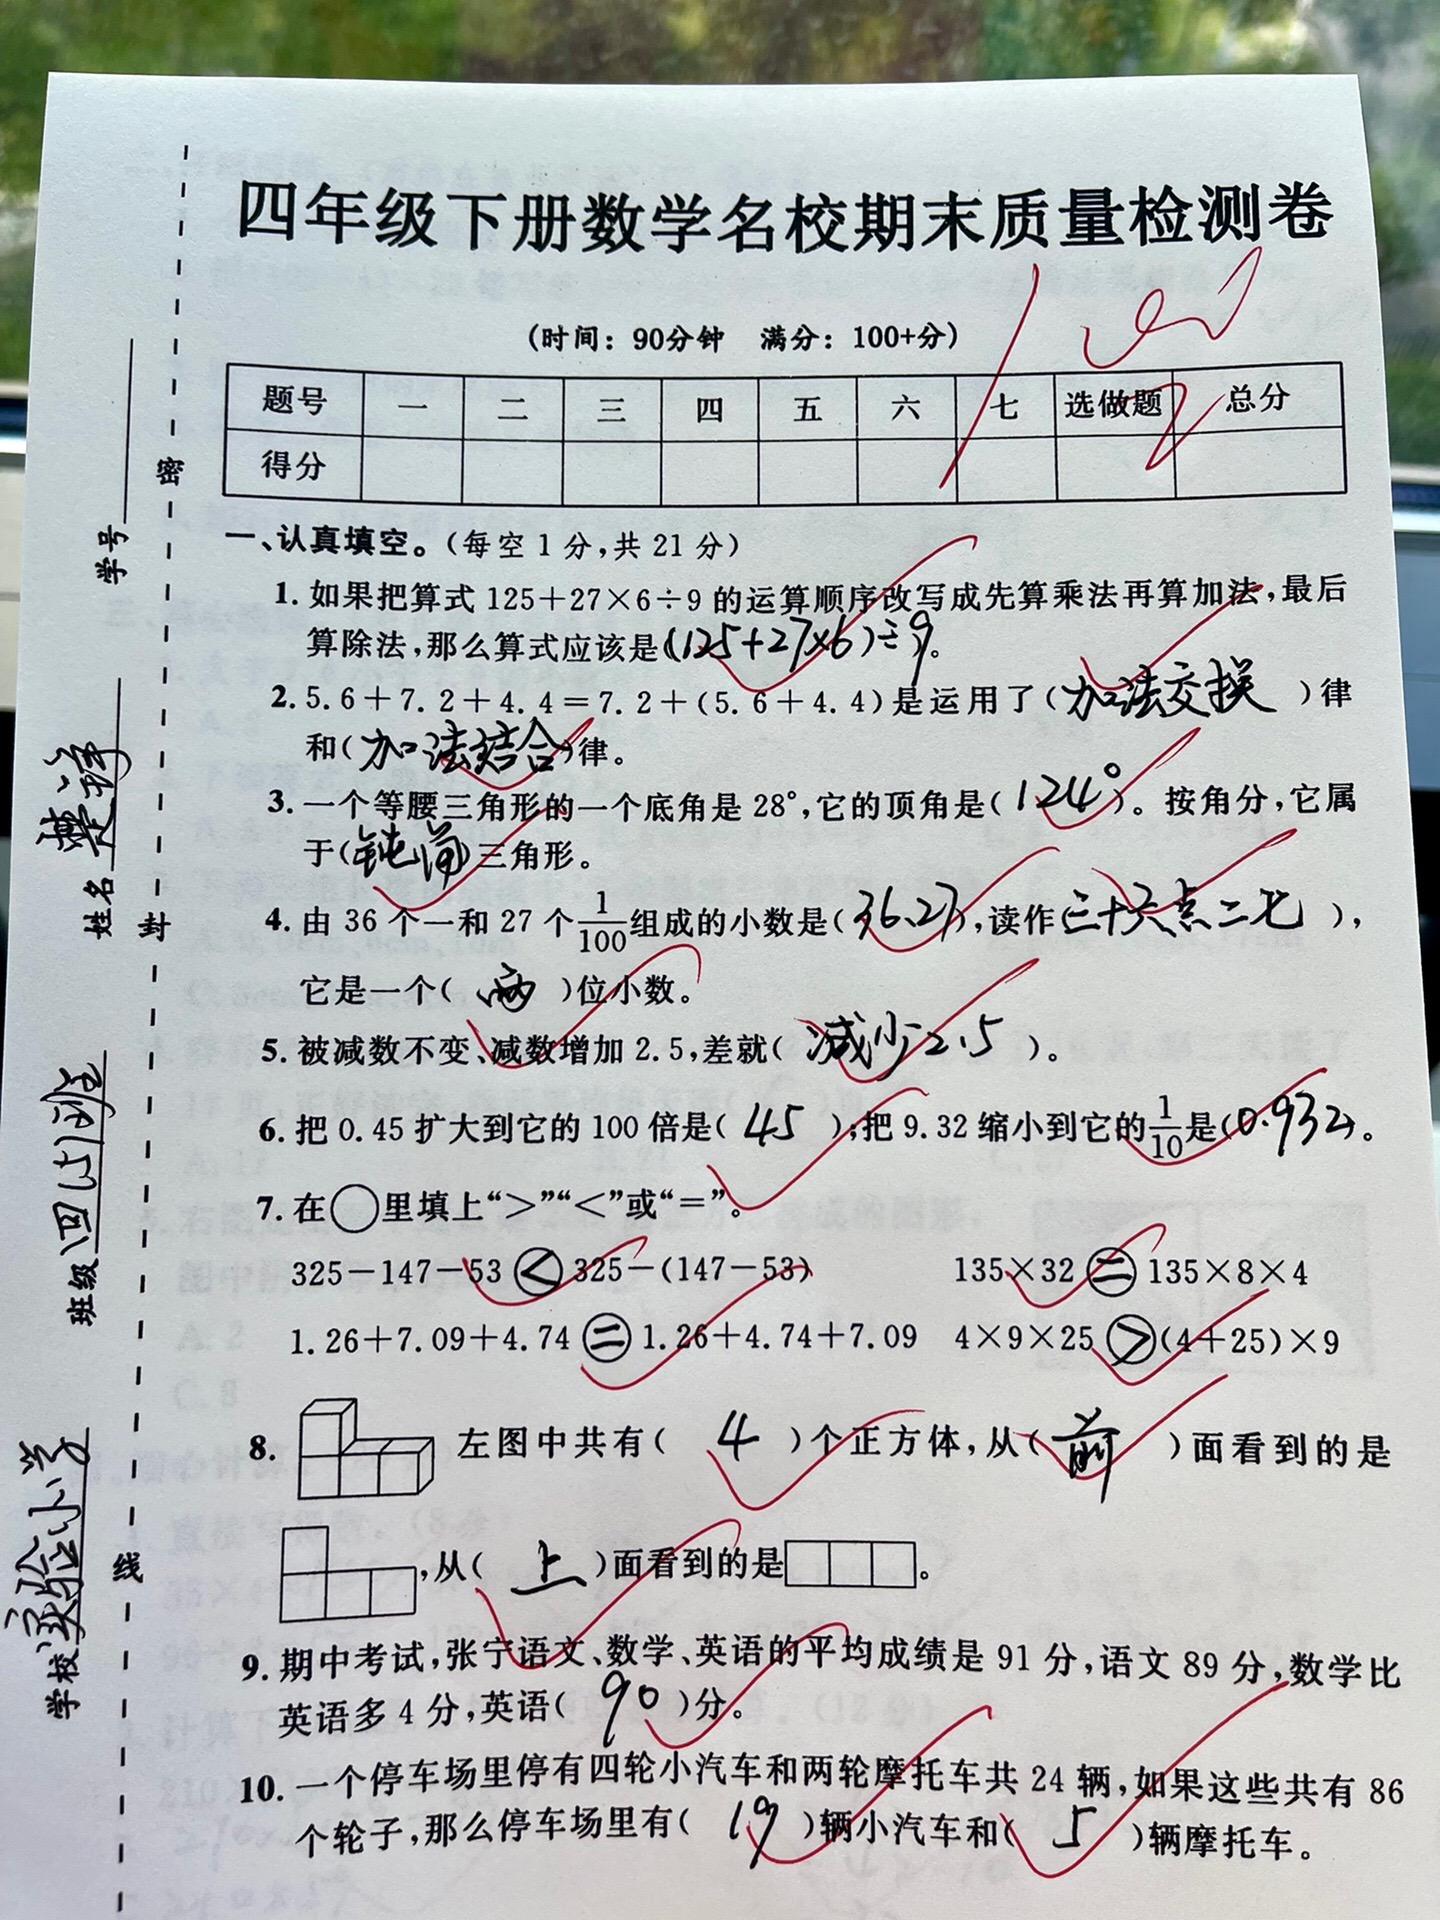 四年级下册数学名校期末质量检测卷
(时间：90分钟 满分：100+分)
题号 一 二 三 四 五 六 七 选做题 总分
得分
一、认真填空。(每空1分,共21分)
1. 如果把算式 125+27×6÷9 的运算顺序改写成先算乘法再算加法,最后
算除法,那么算式应该是((125+27×6)÷9。
2. 5.6+7.2+4.4=7.2+(5.6+4.4)是运用了(加法交换)律
和(加法结合)律。
3. 一个等腰三角形的一个底角是28°,它的顶角是(124°)。按角分,它属
于(钝角)三角形。
4. 由 36 个一和 27 个1/100组成的小数是(36.27),读作(三十六点二七),
它是一个(两)位小数。
5. 被减数不变、减数增加 2.5,差就(减少2.5)。
6. 把 0.45 扩大到它的 100 倍是(45);把 9.32 缩小到它的1/10是(0.932)。
7. 在○里填上“>”“<”或“=”。
325-147-53 < 325-(147-53) 135×32 = 135×8×4
1.26+7.09+4.74 = 1.26+4.74+7.09 4×9×25 > (4+25)×9
8. 左图中共有(4)个正方体,从(前)面看到的是
,从(上)面看到的是 。
9. 期中考试,张宁语文、数学、英语的平均成绩是 91 分,语文 89 分,数学比
英语多 4 分,英语(90)分。
10. 一个停车场里停有四轮小汽车和两轮摩托车共 24 辆,如果这些共有 86
个轮子,那么停车场里有(19)辆小汽车和(5)辆摩托车。
学号
姓名
班级 四(5)班
学校 实验小学
密
封
线